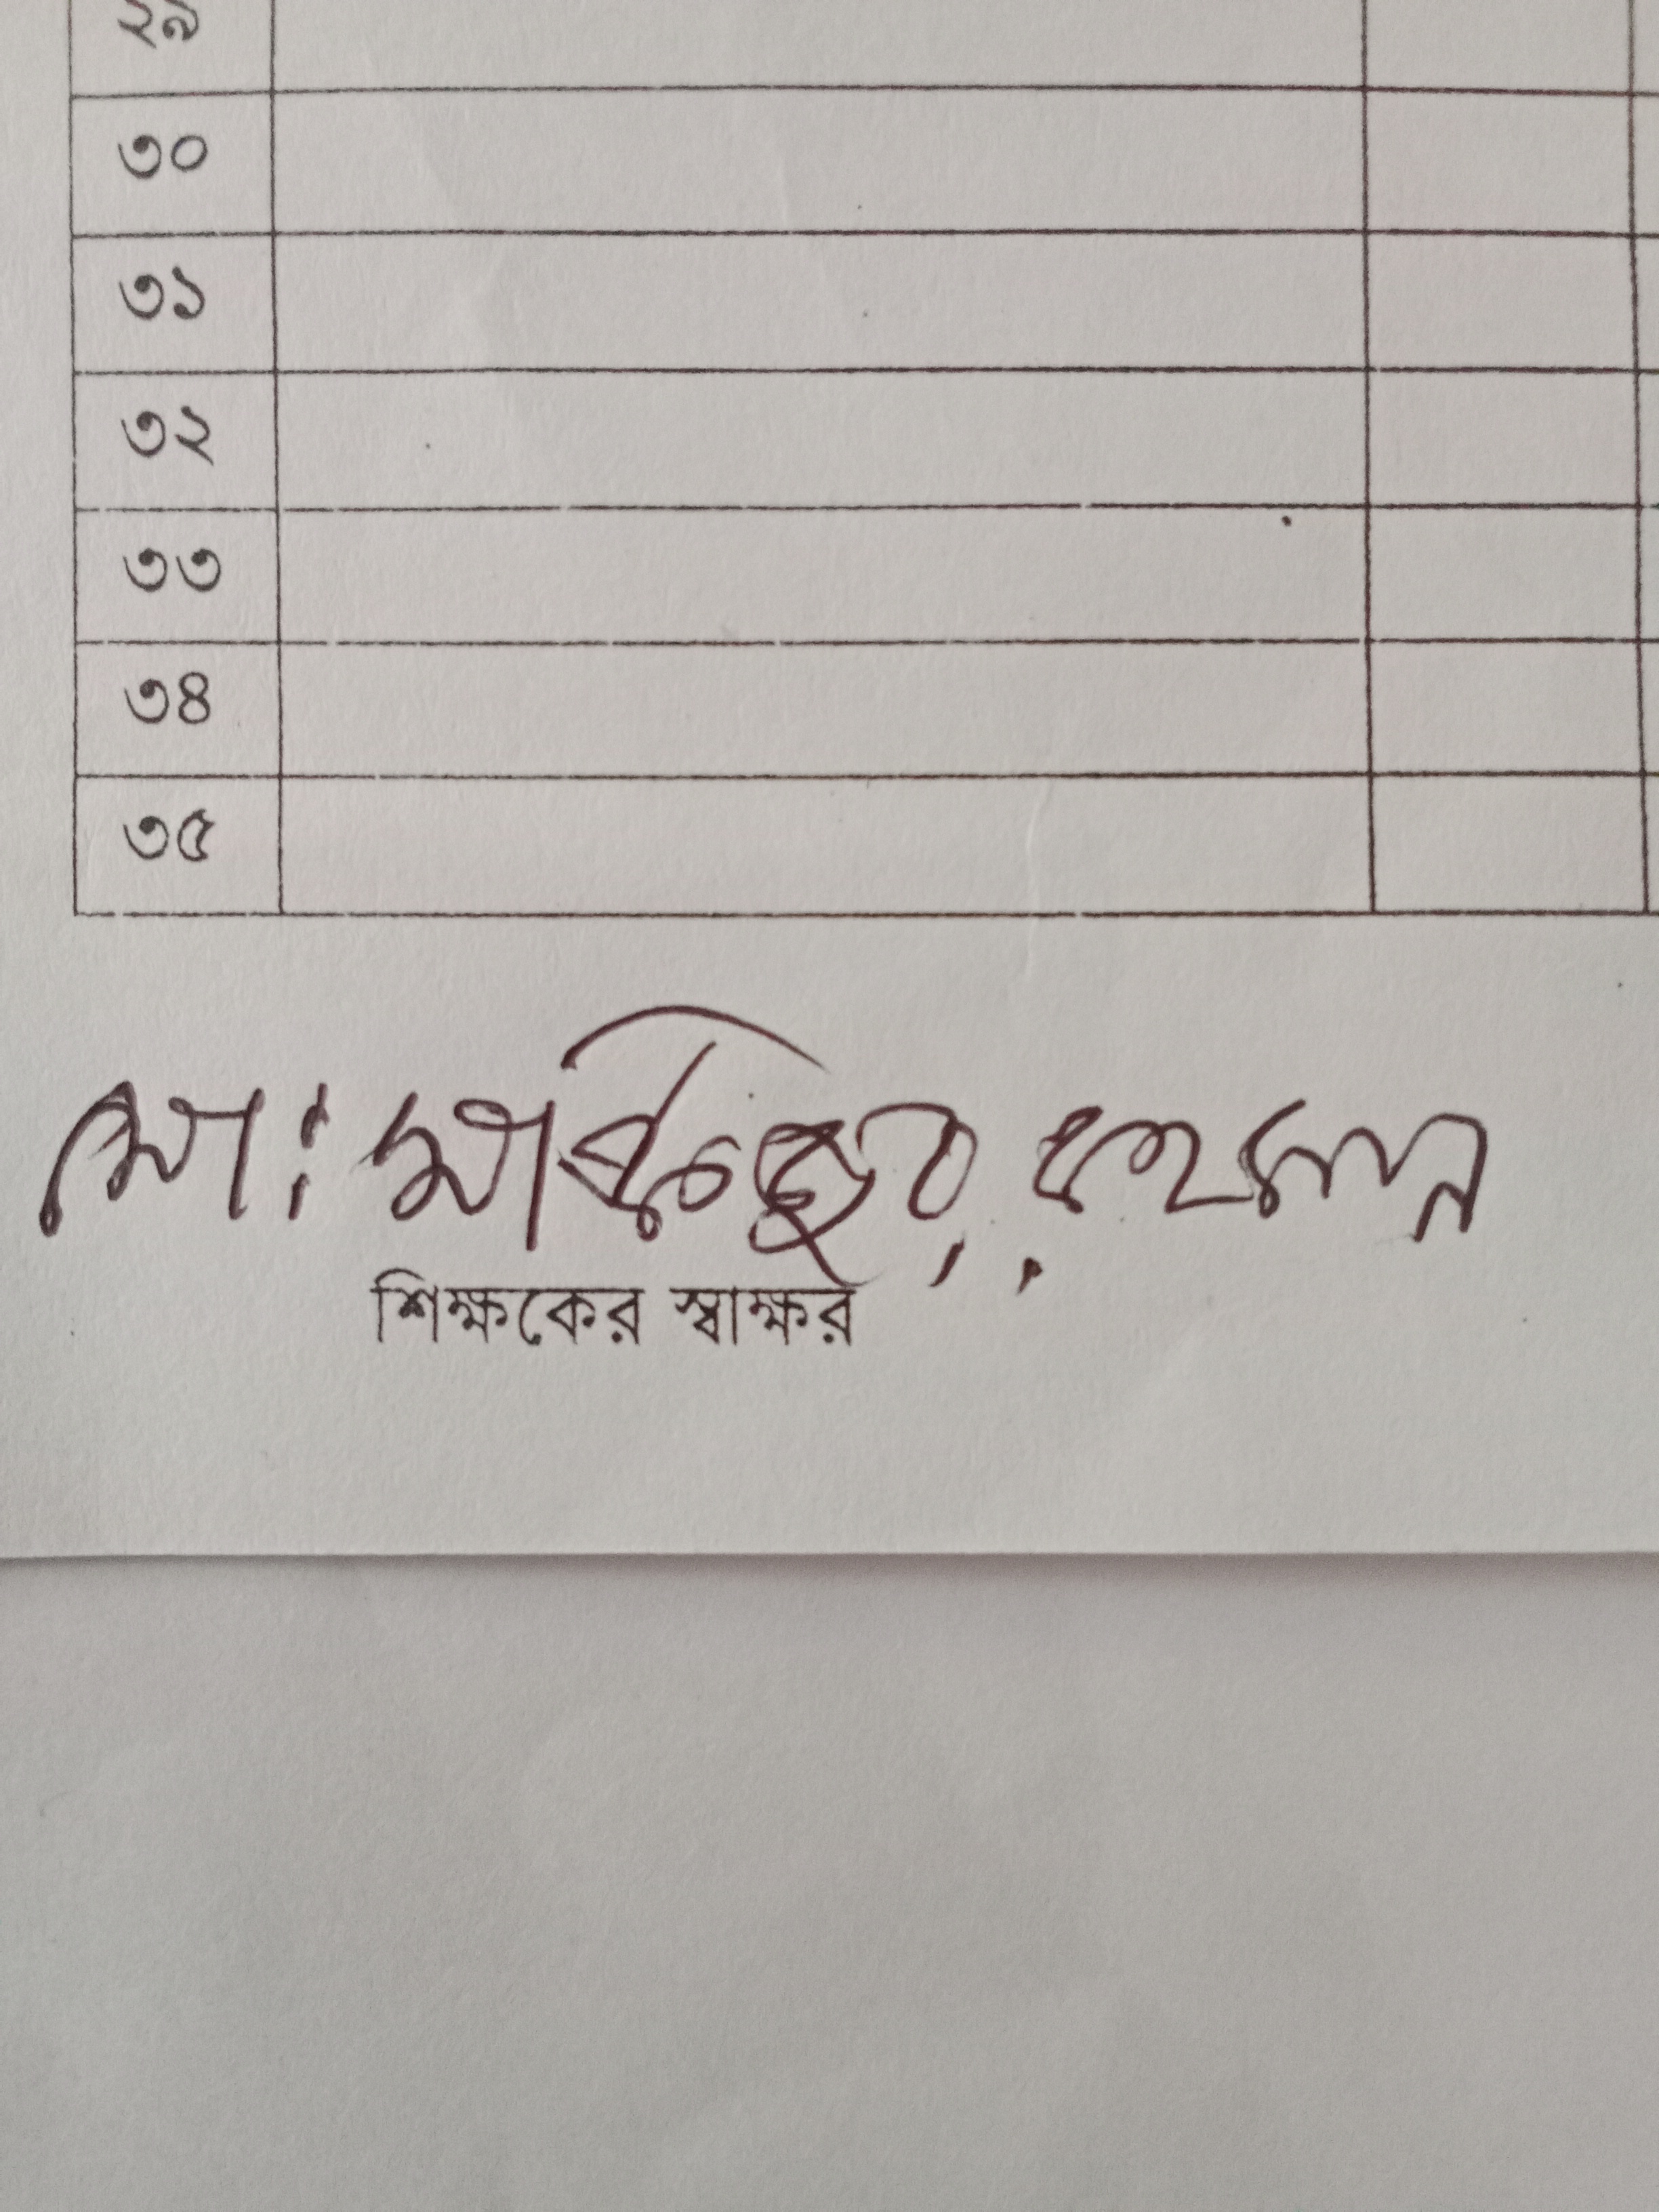 ২৯
৩০
৩১
৩২
৩৩
৩৪
৩৫
মো: রহমান
শিক্ষকের স্বাক্ষর